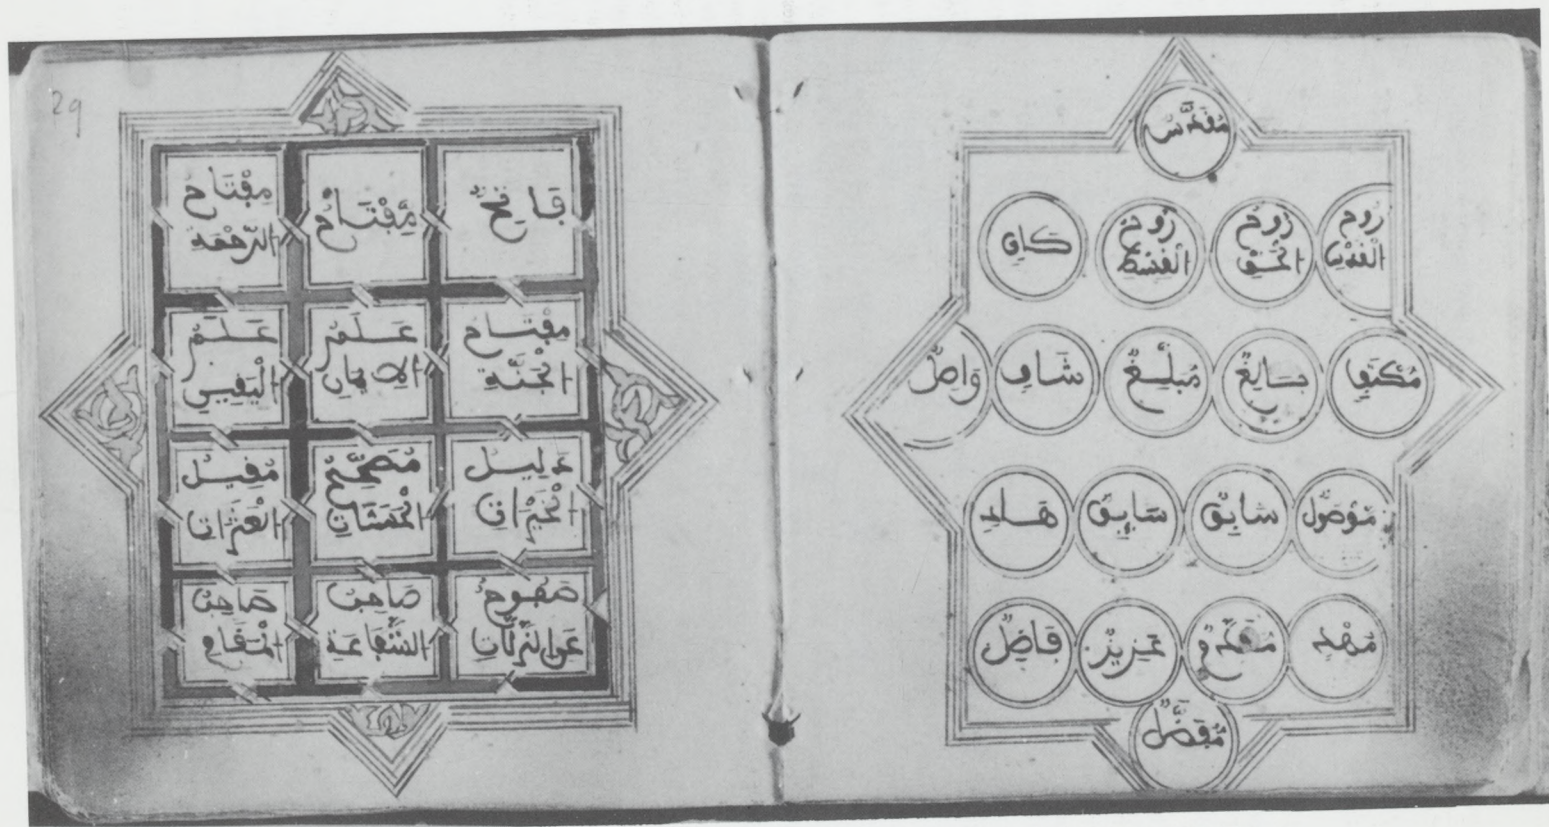 مُقَدَّسٌ
رُوحُ
الْقُدُسِ
رُوحُ
الْحَقِّ
رُوحُ
الْقِسْطِ
كَافٍ
مُكْتَفٍ
بَالِغٌ
مُبَلِّغٌ
شَافٍ
وَاصِلٌ
مَوْصُولٌ
سَابِقٌ
سَايِقٌ
هَادٍ
مُهْدٍ
مُقَدَّمٌ
عَزِيزٌ
فَاضِلٌ
مُفَضَّلٌ
29
فَاتِحٌ
مِفْتَاحٌ
مِفْتَاحُ
الرَّحْمَةِ
مِفْتَاحُ
الْجَنَّةِ
عَلَمُ
الايمَانِ
عَلَمُ
الْيَقِينِ
دَلِيلُ
الْخَيْرَاتِ
مُصَحِّحُ
الْحَسَنَاتِ
مُقِيلُ
الْعَثَرَاتِ
صَفُوحٌ
عَنِ الزَّلَّاتِ
صَاحِبُ
الشَّفَاعَةِ
صَاحِبُ
الْمَقَامِ